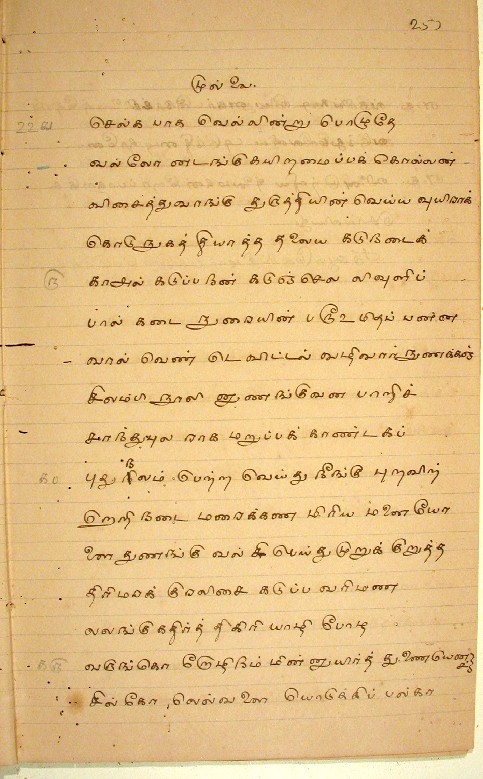 257
முல்லை.
224 செல்க பாக வெல்லின்று பொழுதே
வல்லோ னடங்குகயிறமைப்பக் கொல்லன்
விசைத்துவாங்கு துருத்தியின் வெய்ய வுயிராக்
கொடுநுகத் தியாத்த தலைய கடுநடைக்
௫ காஅல் கடுப்பநன் கடுஞ்செல லிவுளிப்
பால் கடை நுரையின் பரூஉமிதப் பன்ன
வால் வெண் டெவிட்டல் வழிவார்நுணக்கஞ்
சிலம்பி நூலி னுணங்குவன பாறிச்
சாந்துபுல ராக மறுப்பக் காண்டகப்
௧௦ புது நலம் பெற்ற வெய்து நீங்கு புறவிற்
றெறிநடை மரைக்கண மிரிய மனையோ
ளைதுணங்கு வல்சி பெய்துமுறுக் குறுத்த
திரிமரக் குரலிசை கடுப்ப வரிமண
லலங்குகதிர்த் திகிரி யாழி போழ
௧௫ வருங்கொ றோழிநம் மின்னுயிர்த் துணையென
சில் கோ லெல்வளை யொடுக்கிப் பல்கா